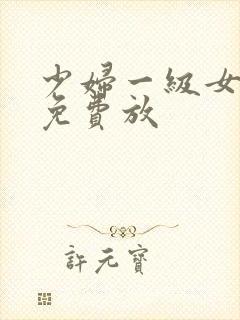 少婦一級女
免費放
許元寶